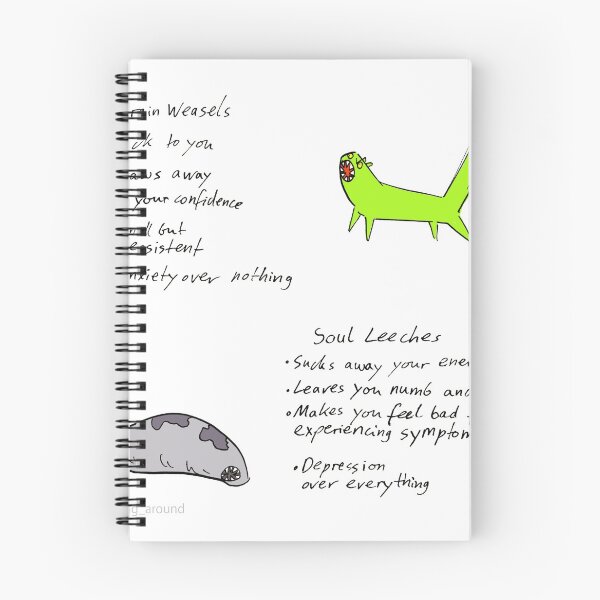 ain Weasels
to you
aws away
your confidence
ll but
ersistent
nxiety over nothing
Soul Leeches
• Sucks away your ener
• Leaves you numb and
• Makes you feel bad
experiencing symptom
• Depression
over everything
g_around